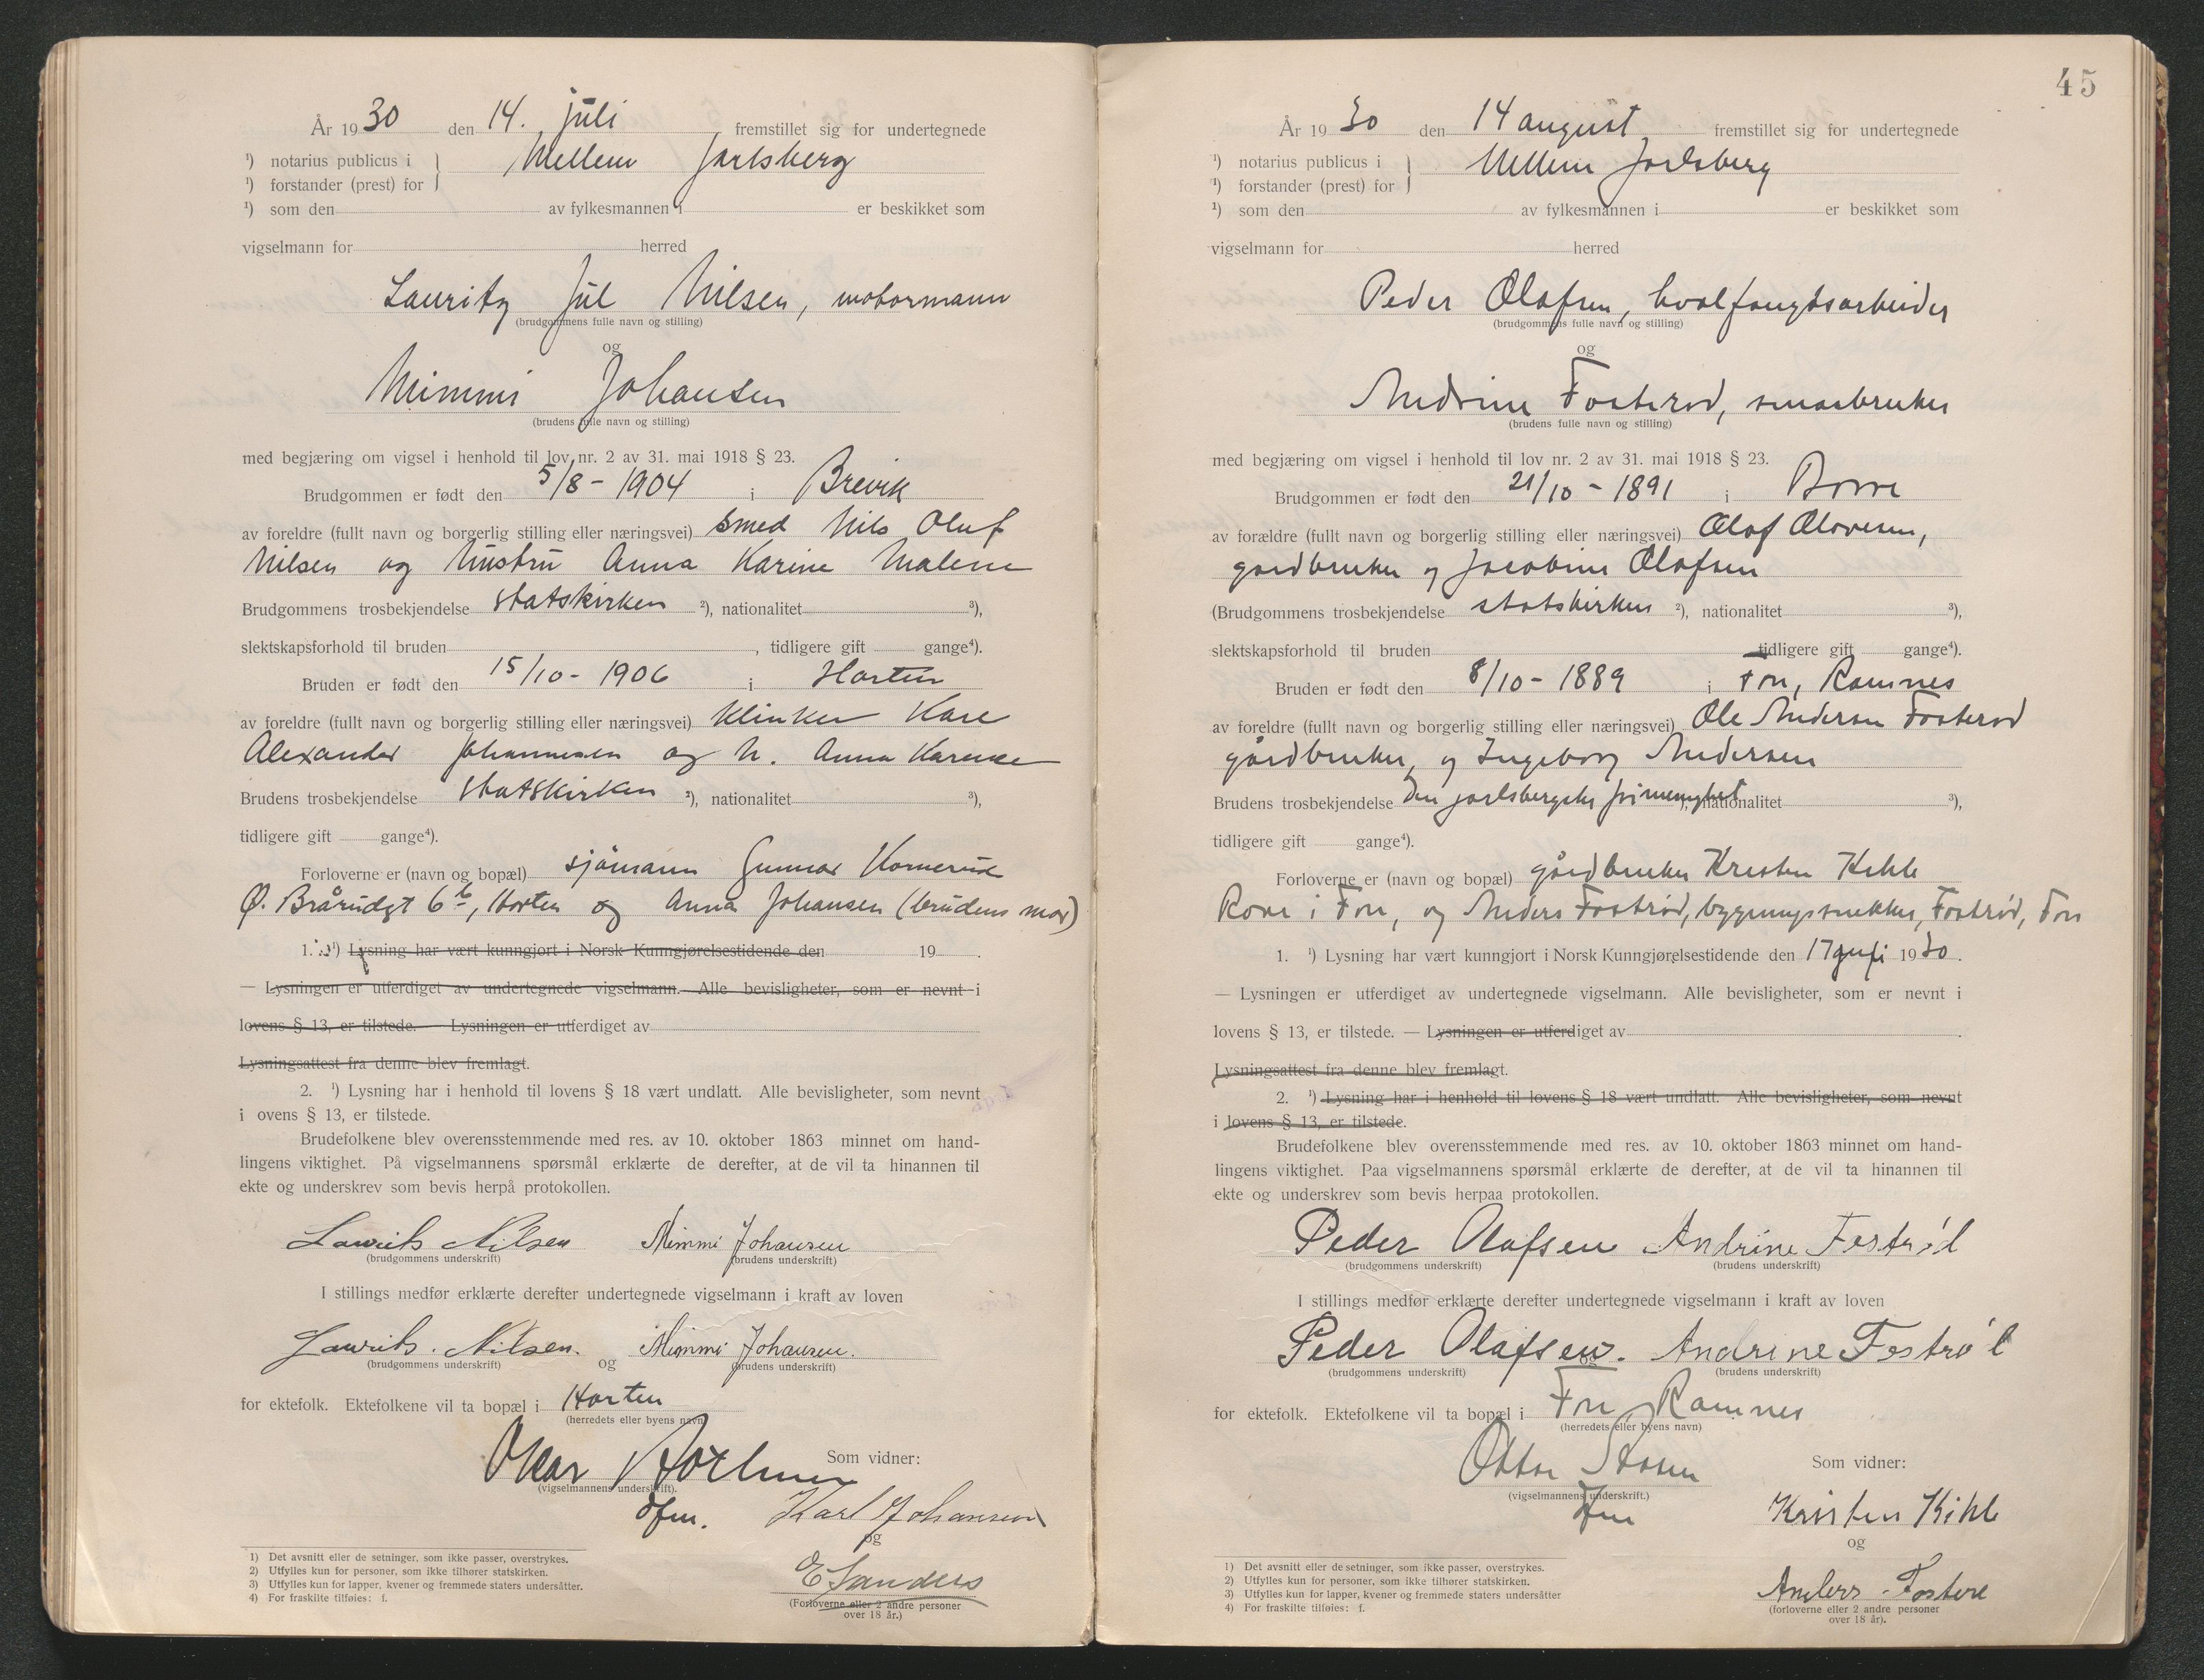 År 1930 den 14. juli fremstillet sig for undertegnede
¹) notarius publicus i } Mellem Jarlsberg
¹) forstander (prest) for
¹) som den av fylkesmannen i er beskikket som
vigselmann for herred
Lauritz Jul Nilsen, motormann
(brudgommens fulle navn og stilling)
og
Mimmi Johansen
(brudens fulle navn og stilling)
med begjæring om vigsel i henhold til lov nr. 2 av 31. mai 1918 § 23.
Brudgommen er født den 5/8 - 1904 i Brevik
av foreldre (fullt navn og borgerlig stilling eller næringsvei) smed Nils Oluf
Nilsen og hustru Anna Karine Malene
Brudgommens trosbekjendelse statskirken ²), nationalitet ³),
slektskapsforhold til bruden , tidligere gift gange⁴).
Bruden er født den 15/10 - 1906 i Horten
av foreldre (fullt navn og borgerlig stilling eller næringsvei) klinker Karl
Alexander Johannesen og h. Anna
Brudens trosbekjendelse statskirken ²), nationalitet ³),
tidligere gift gange⁴).
Forloverne er (navn og bopæl) sjömann Gunnar
Ø. Brårudgt 6 b, Horten og Anna Johansen (brudens mor)
1. ¹) Lysning har vært kunngjort i Norsk Kunngjørelsestidende den 19 .
— Lysningen er utferdiget av undertegnede vigselmann. Alle bevisligheter, som er nevnt i
lovens § 13, er tilstede. — Lysningen er utferdiget av
Lysningsattest fra denne blev fremlagt.
2. ¹) Lysning har i henhold til lovens § 18 vært undlatt. Alle bevisligheter, som nevnt
i ovens § 13, er tilstede.
Brudefolkene blev overensstemmende med res. av 10. oktober 1863 minnet om hand-
lingens viktighet. På vigselmannens spørsmål erklærte de derefter, at de vil ta hinannen til
ekte og underskrev som bevis herpå protokollen.
Laurits Nilsen Mimmi Johansen
(brudgommens underskrift) (brudens underskrift)
I stillings medfør erklærte derefter undertegnede vigselmann i kraft av loven
Laurits. Nilsen. og Mimmi Johansen.
(brudgommens underskrift) (brudens underskrift)
for ektefolk. Ektefolkene vil ta bopæl i Horten
(herredets eller byens navn)
Som vidner:
(vigselmannens underskrift).
Karl Johansen
og
E Sanders
(Forloverne eller 2 andre personer
over 18 år.)
1) Det avsnitt eller de setninger, som ikke passer, overstrykes.
2) Utfylles kun for personer, som ikke tilhører statskirken.
3) Utfylles kun for lapper, kvener og fremmede staters undersåtter.
4) For fraskilte tilføies: f.
45
År 1930 den 14 august fremstillet sig for undertegnede
¹) notarius publicus i } Mellem Jarlsberg
¹) forstander (prest) for
¹) som den av fylkesmannen i er beskikket som
vigselmann for herred
Peder Olafsen, hvalfangstarbeider
(brudgommens fulle navn og stilling)
og
Andrine Fosterød, smaabruker
(brudens fulle navn og stilling)
med begjæring om vigsel i henhold til lov nr. 2 av 31. mai 1918 § 23.
Brudgommen er født den 21/10 - 1891 i Borre
av forældre (fullt navn og borgerlig stilling eller næringsvei) Olaf Olavesen,
gårdbruker og Jacobine Olafsen
(Brudgommens trosbekjendelse statskirken ²), nationalitet ³),
slektskapsforhold til bruden tidligere gift gange⁴).
Bruden er født den 8/10 - 1889 i Fon, Ramnes
av foreldre (fullt navn og borgerlig stilling eller næringsvei) Ole Andersen Fosterød
gårdbruker, og Ingeborg Andersen
Brudens trosbekjendelse Den jarlsbergske frimenighet ²), nationalitet ³),
tidligere gift gange⁴).
Forloverne er (navn og bopæl) gårdbruker Kristen Kihle
i Fon, og Anders Fostrød, bygningssnekker, Fostrød, Fon
1. ¹) Lysning har vært kunngjort i Norsk Kunngjørelsestidende den 17 juli 1930.
— Lysningen er utferdiget av undertegnede vigselmann. Alle bevisligheter, som er nevnt i
lovens § 13, er tilstede. — Lysningen er utferdiget av .
Lysningsattest fra denne blev fremlagt.
2. ¹) Lysning har i henhold til lovens § 18 vært undlatt. Alle bevisligheter, som nevnt
i lovens § 13, er tilstede.
Brudefolkene blev overensstemmende med res. av 10. oktober 1863 minnet om hand-
lingens viktighet. Paa vigselmannens spørsmål erklærte de derefter, at de vil ta hinannen til
ekte og underskrev som bevis herpaa protokollen.
Peder Olafsen Andrine Fostrød
(brudgommens underskrift) (brudens underskrift)
I stillings medfør erklærte derefter undertegnede vigselmann i kraft av loven
Peder Olafsen. Andrine Fostrød
(brudgommens underskrift) (brudens underskrift)
for ektefolk. Ektefolkene vil ta bopæl i Fon, Ramnes
(herredets eller byens navn)
Som vidner:
(vigselmannens underskrift.)
Kristen Kihle
og
Anders Fosterø
(forloverne eller 2 andre personer
over 18 år).
1) Det avsnitt eller de setninger, som ikke passer, overstrykes.
2) Utfylles kun for personer, som ikke tilhører statskirken.
3) Utfylles kun for lapper, kvener og fremmede staters undersåtter
4) For fraskilte tilføies: f.